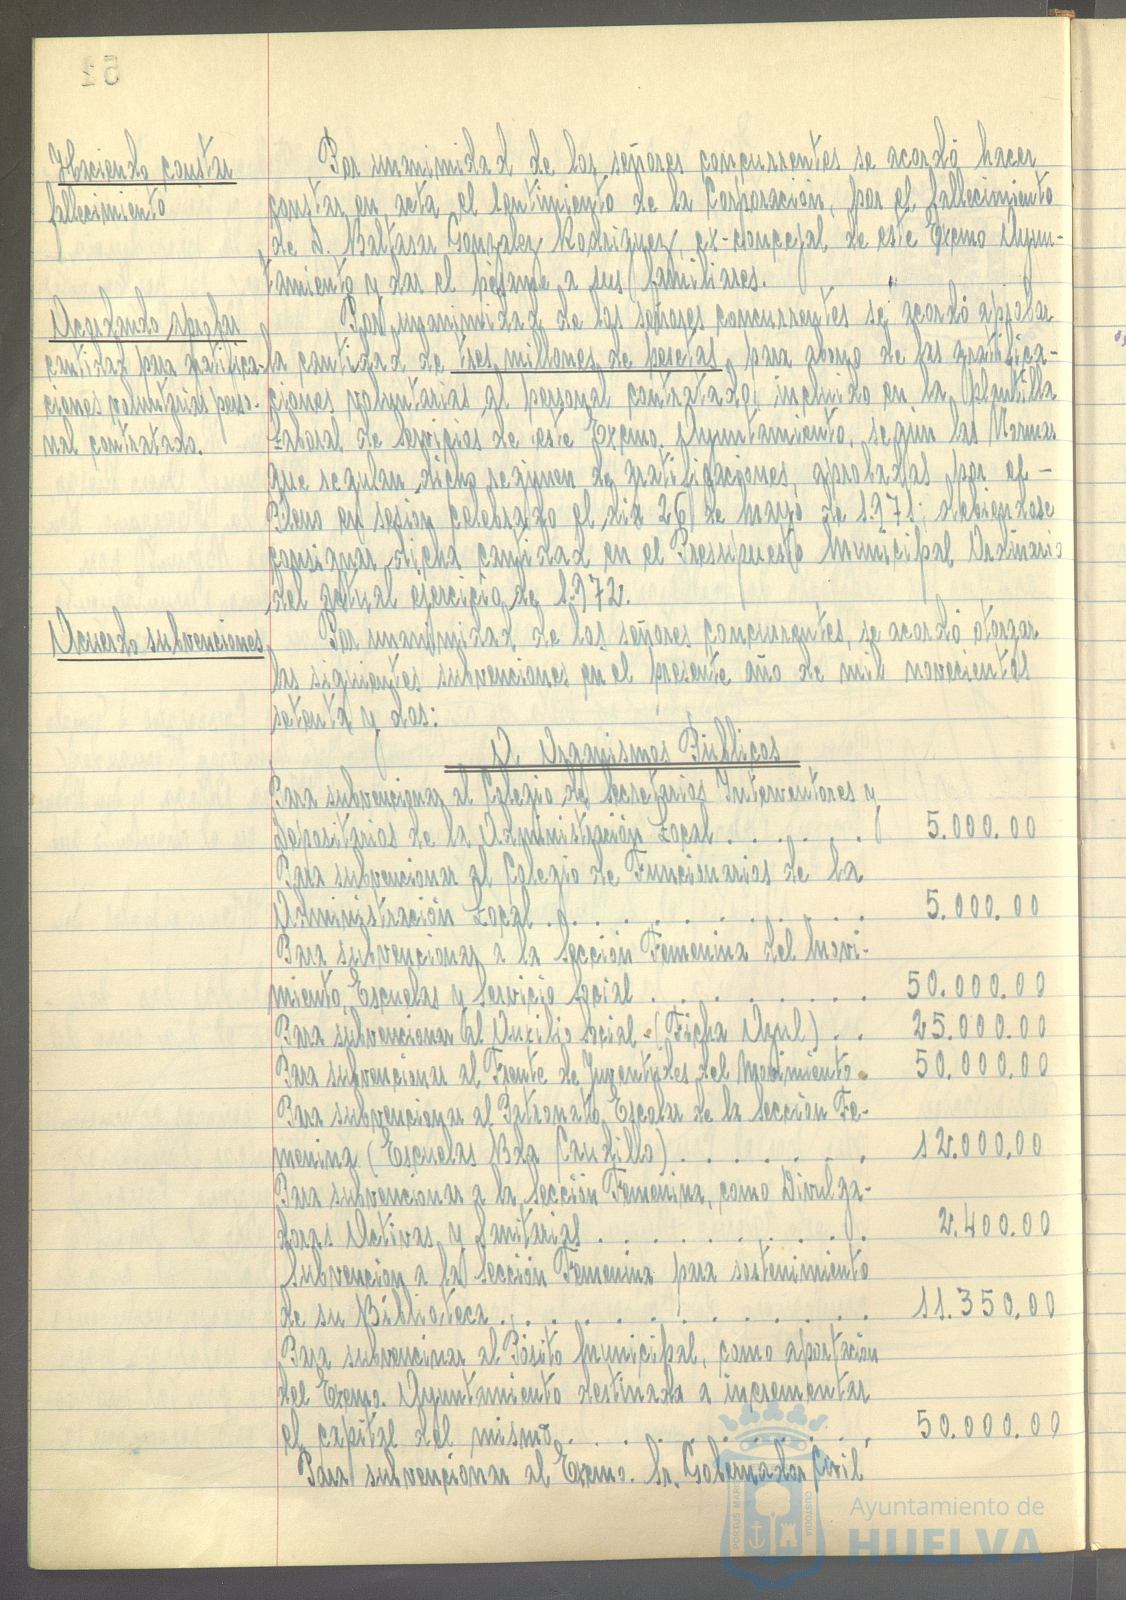 Haciendo constar
fallecimiento
Por unanimidad de los señores concurrentes se acordó hacer
constar en acta el sentimiento de la Corporación, por el fallecimiento
de D. Baltasar Gonzalez Rodriguez, ex-concejal de este Excmo Ayun-
tamiento y dar el pésame a sus familiares.
Acordando aprobar
cantidad para gratifica-
ciones voluntarias perso-
nal contratado.
Por unanimidad de los señores concurrentes se acordó aprobar
la cantidad de tres millones de pesetas, para abono de las gratifica-
ciones voluntarias al personal contratado, incluido en la Plantilla
Laboral de Servicios de este Excmo. Ayuntamiento, según las Normas
que regulan dicho regimen de gratificaciones, aprobadas por el -
Pleno en sesión celebrado el dia 26 de Mayo de 1.971; debiendose
consignar dicha cantidad en el Presupuesto Municipal Ordinario
del actual ejercicio de 1.972.
Acuerdo subvenciones
Por unanimidad de los señores concurrentes, se acordó otorgar
las siguientes subvenciones en el presente año de mil novecientos
setenta y dos:
A Organismos Públicos
Para subvencionar al Colegio de Secretarios Interventores y
Depositarios de la Administración Local . . . . . . 5.000.00
Para subvencionar al Colegio de Funcionarios de la
Administración Local . . . . . . . . . . . . 5.000.00
Para subvencionar a la Sección Femenina del Movi-
miento, Escuelas y Servicio Social . . . . . . . . 50.000.00
Para subvencionar al Auxilio Social - (Ficha Azul) . . 25.000.00
Para subvencionar al Frente de Juventudes del Movimiento . 50.000.00
Para subvencionar al Patronato Escolar de la Sección Fe-
menina (Escuelas Bda Caudillo) . . . . . . . 12.000,00
Para subvencionar a la Sección Femenina, como Divulga-
doras Activas y Sanitarias . . . . . . . . . . 2.400.00
Subvención a la Sección Femenina para sostenimiento
de su Biblioteca . . . . . . . . . . . . . . 11.350,00
Para subvencinar al Pósito Municipal, como aportación
del Excmo. Ayuntamiento destinada a incrementar
el capital del mismo . . . . . . . . . . . . 50.000.00
Para subvencionar al Excmo. Sr. Gobernador Civil
PORTUS MARIS
CUSTODIA
Ayuntamiento de
HUELVA